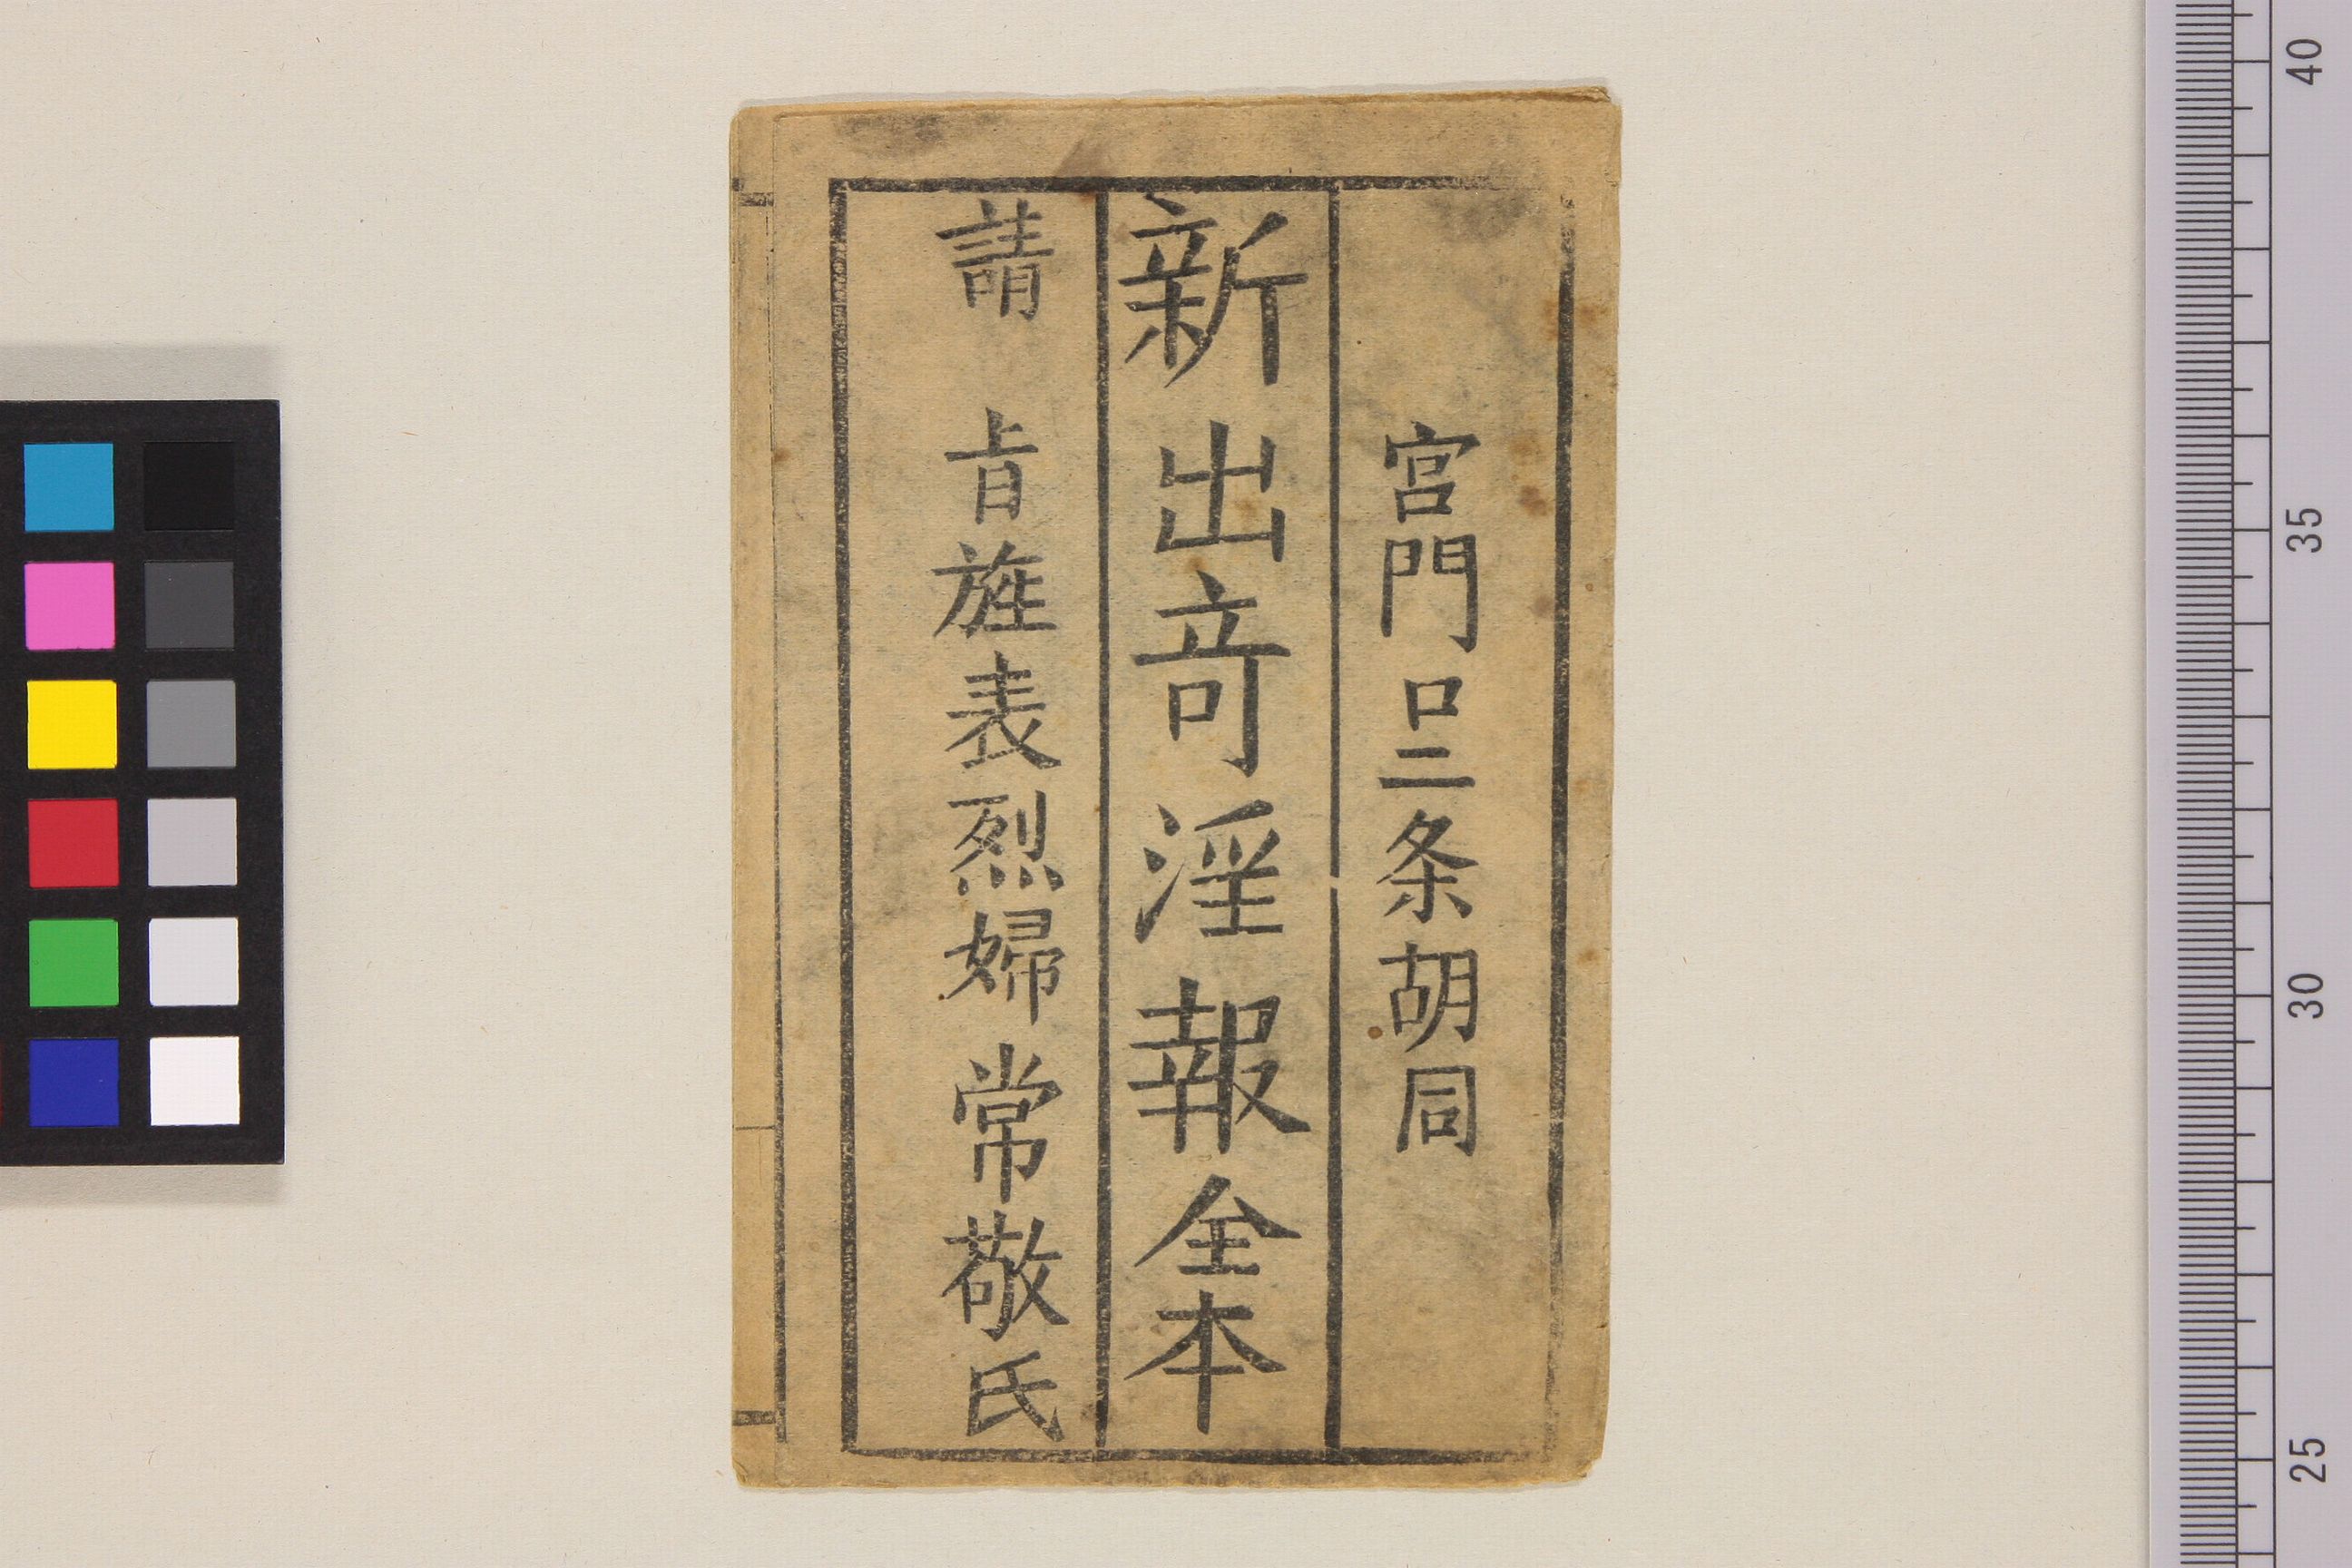 宮門口二条胡同
新出竒淫報全本
請 㫖旌表烈婦常敬氏
40
35
30
25